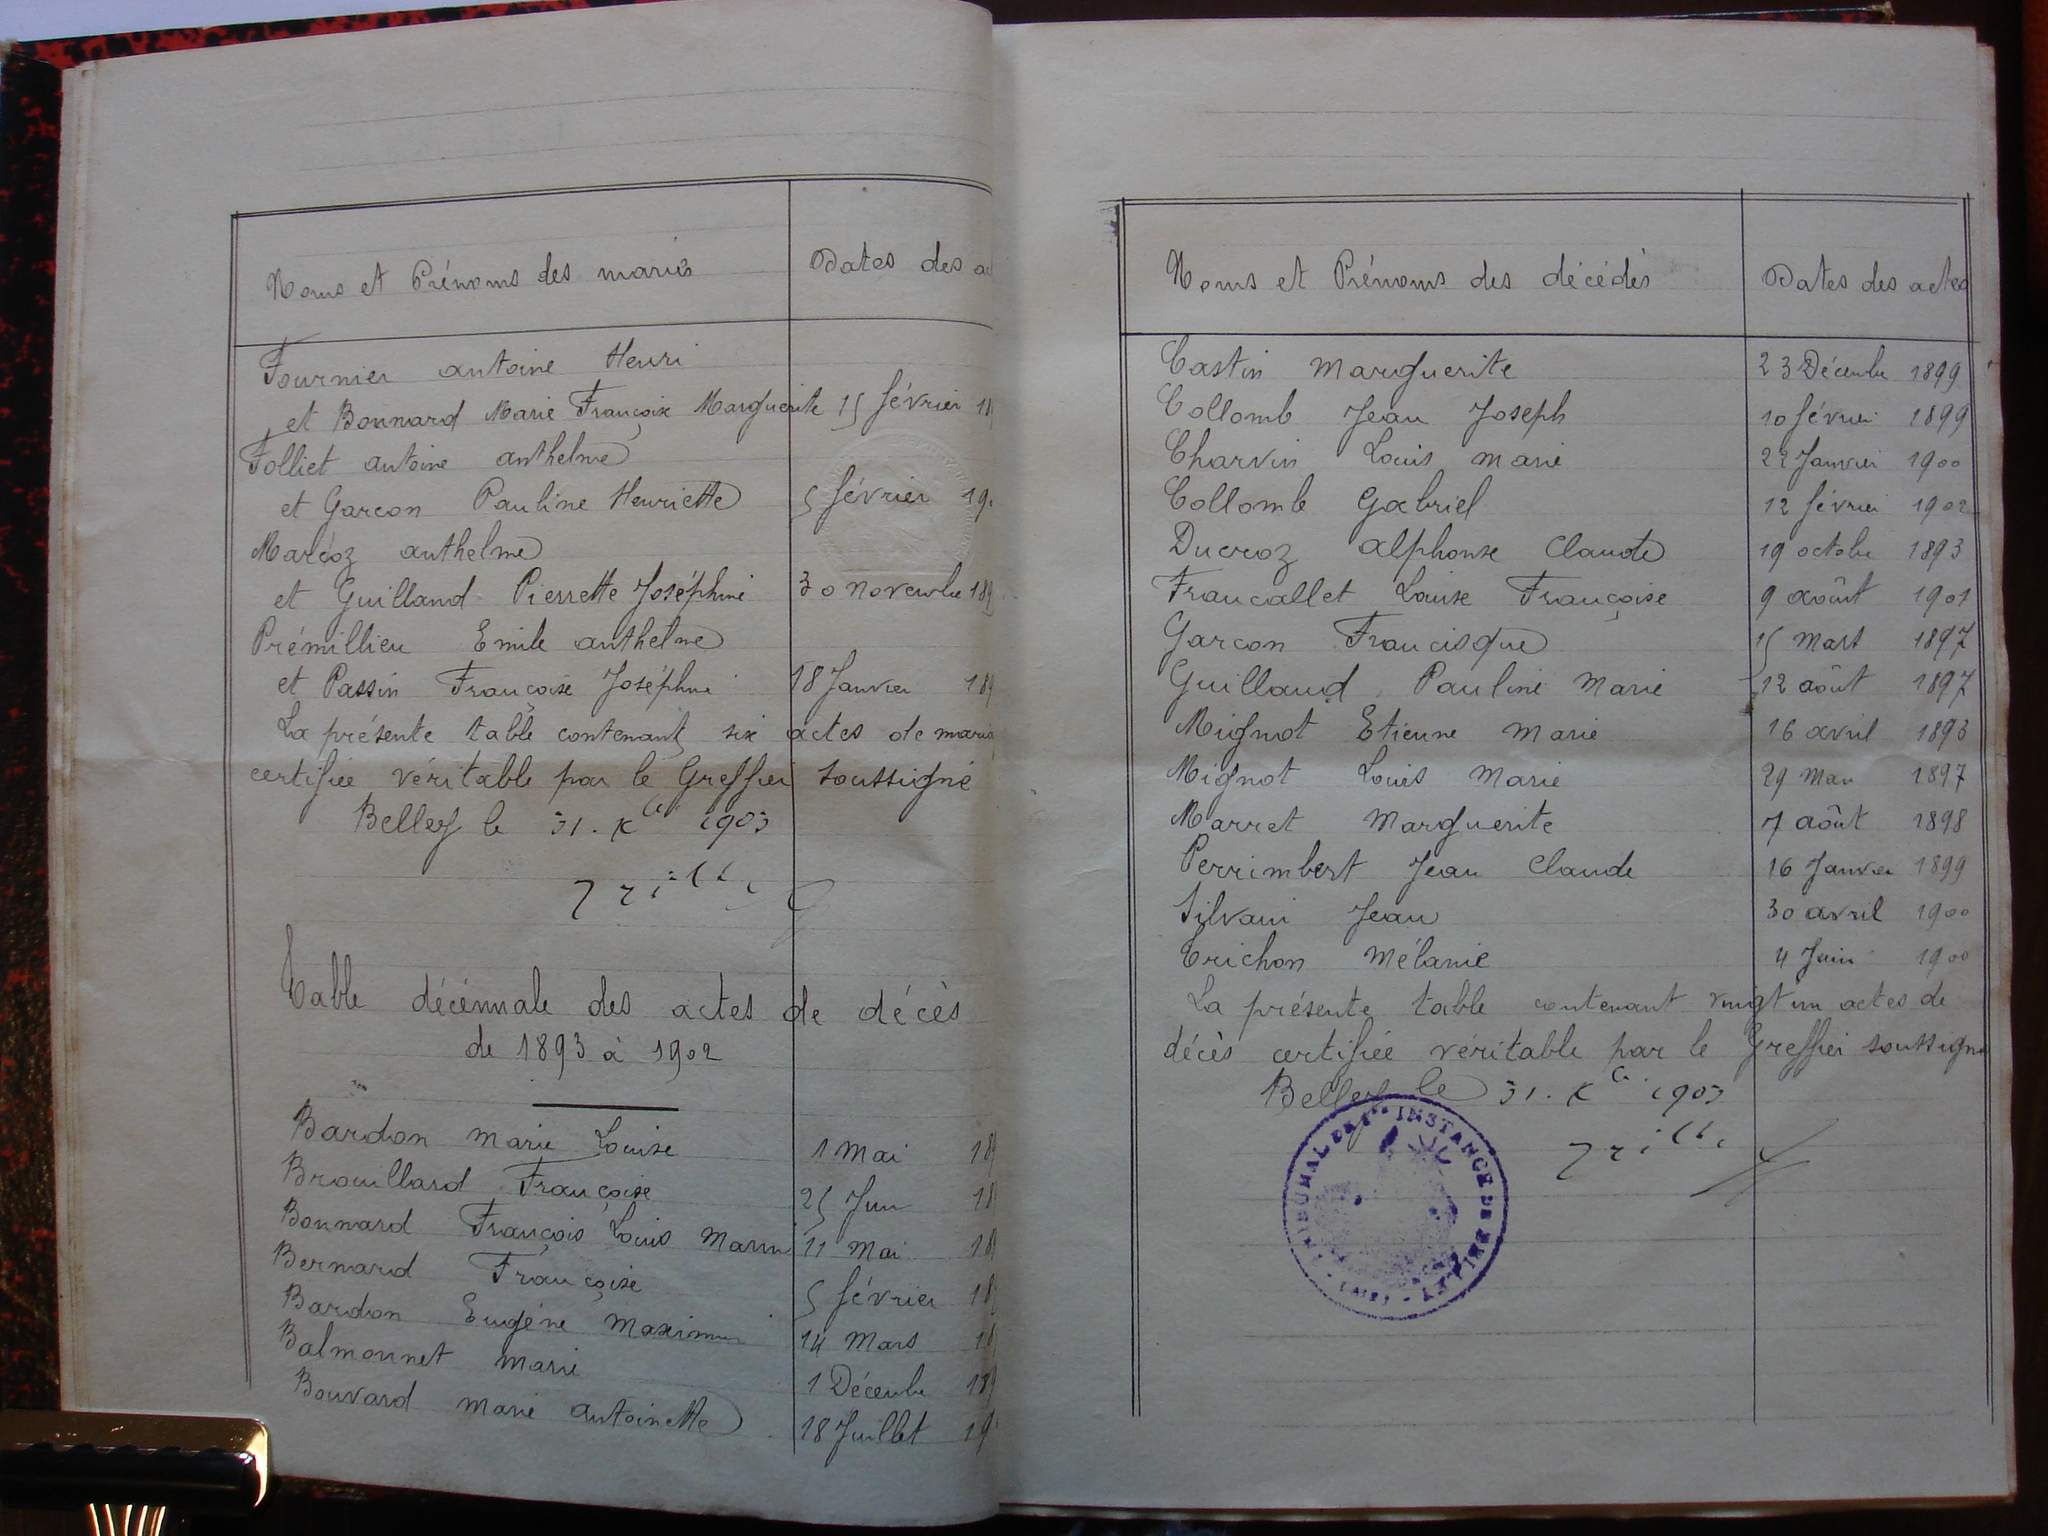 Noms et Prénoms des mariés Dates des
Fournier Antoine Henri
et Bonnard Marie Françoise Marguerite 15 février
Folliet Antoine Anthelme
et Garcon Pauline Henriette 5 février
Marcoz Anthelme
et Guilland Pierrette Joséphine 30 Novembre
Prémillieu Emile Anthelme
et Passin Françoise Joséphine 18 Janvier
La présente table contenant six actes de
certifiée véritable par le Greffier soussigné
Belley le 31. Xbre 1903
Table décennale des actes de décès
de 1893 à 1902
Bardon Marie Louise 1 Mai
Brouillard Françoise 25 Juin
Bonnard François Louis Marin 11 Mai
Bernard Françoise 5 février
Bardon Eugène Maximin 14 Mars
Balmonnet Marie 1 Décembre
Bouvard Marie Antoinette 18 Juillet
Noms et Prénoms des décédés Dates des actes
Castin Marguerite 23 Décembre 1899
Collomb Jean Joseph 10 février 1899
Charvin Louis Marie 22 Janvier 1900
Collomb Gabriel 12 février 1902
Ducroz Alphonse Claude 19 octobre 1893
Francallet Louise Françoise 9 août 1901
Garcon Francisque 15 Mars 1897
Guilland Pauline Marie 12 août 1897
Mignot Etienne Marie 16 avril 1893
Mignot Louis Marie 29 Mars 1897
Marret Marguerite 7 août 1898
Perrimbert Jean Claude 16 Janvier 1899
Silvani Jean 30 avril 1900
Trichon Mélanie 4 Juin 1900
La présente table contenant vingt un actes de
décès certifiée véritable par le Greffier soussigné
Belley le 31. Xbre 1903
TRIBUNAL DE 1re INSTANCE DE BELLEY (AIN)